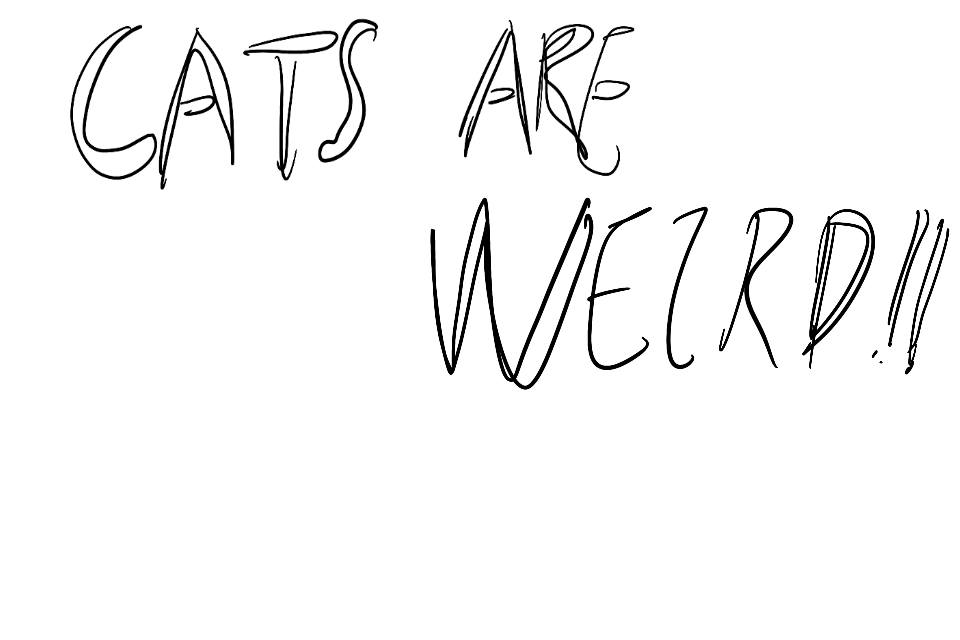 CATS ARE
WEIRD!!